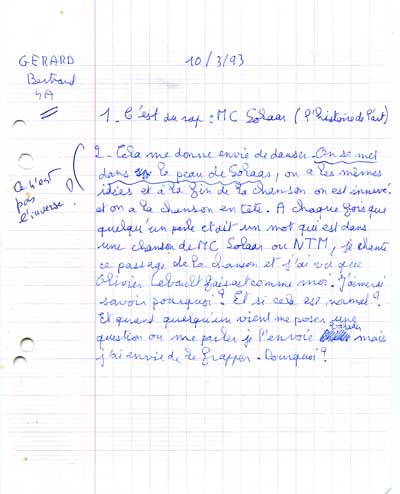 GERARD
Bertrand
4A
10/3/93
1 - C'est du rap : MC Solaar (l'histoire de l'art)
2 - Cela me donne envie de danser. On se met
dans la peau de Solaar, on a les mêmes
idées et à la fin de la chanson on est innervé
et on a la chanson en tête. A chaque fois que
quelqu'un parle et dit un mot qui est dans
une chanson de MC Solaar ou NTM, je chante
ce passage de la chanson et j'ai vu que
Olivier faisait comme moi. J'aimerai
savoir pourquoi ? Et si cela est normal ?
Et quand quelqu'un vient me poser une
question ou me parler je l'envoie balader mais
j'ai envie de le frapper. Pourquoi ?
Ce n'est
pas
l'inverse ?